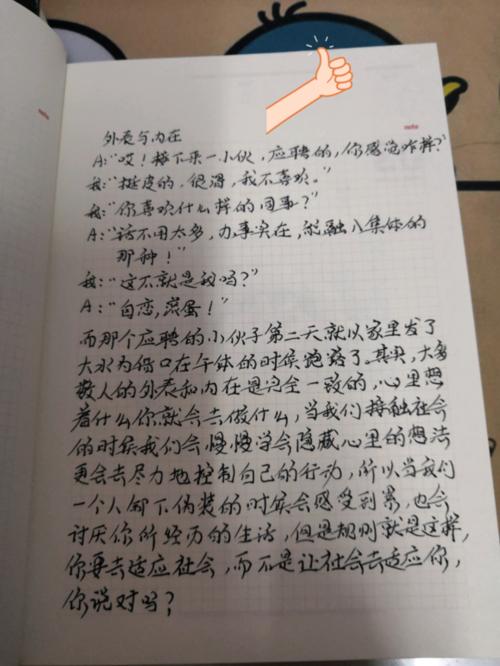 note
外表与内在
A:“哎！接下来一小伙，应聘的，你感觉咋样？”
我:“挺皮的，很滑，我不喜欢。”
我:“你喜欢什么样的同事？”
A:“话不用太多，办事实在，能融入集体的
那种！”
我:“这不就是我吗？”
A:“自恋，滚蛋！”
而那个应聘的小伙子第二天就以家里发了
大水为借口在午休的时候跑路了。其实，大多
数人的外表和内在是完全一致的，心里想
着什么你就会去做什么，当我们接触社会
的时候我们会慢慢学会隐藏心里的想法
更会去尽力地控制自己的行动，所以当我们
一个人卸下伪装的时候会感受到累，也会
讨厌你所经历的生活，但是规则就是这样，
你要去适应社会，而不是让社会去适应你，
你说对吗？